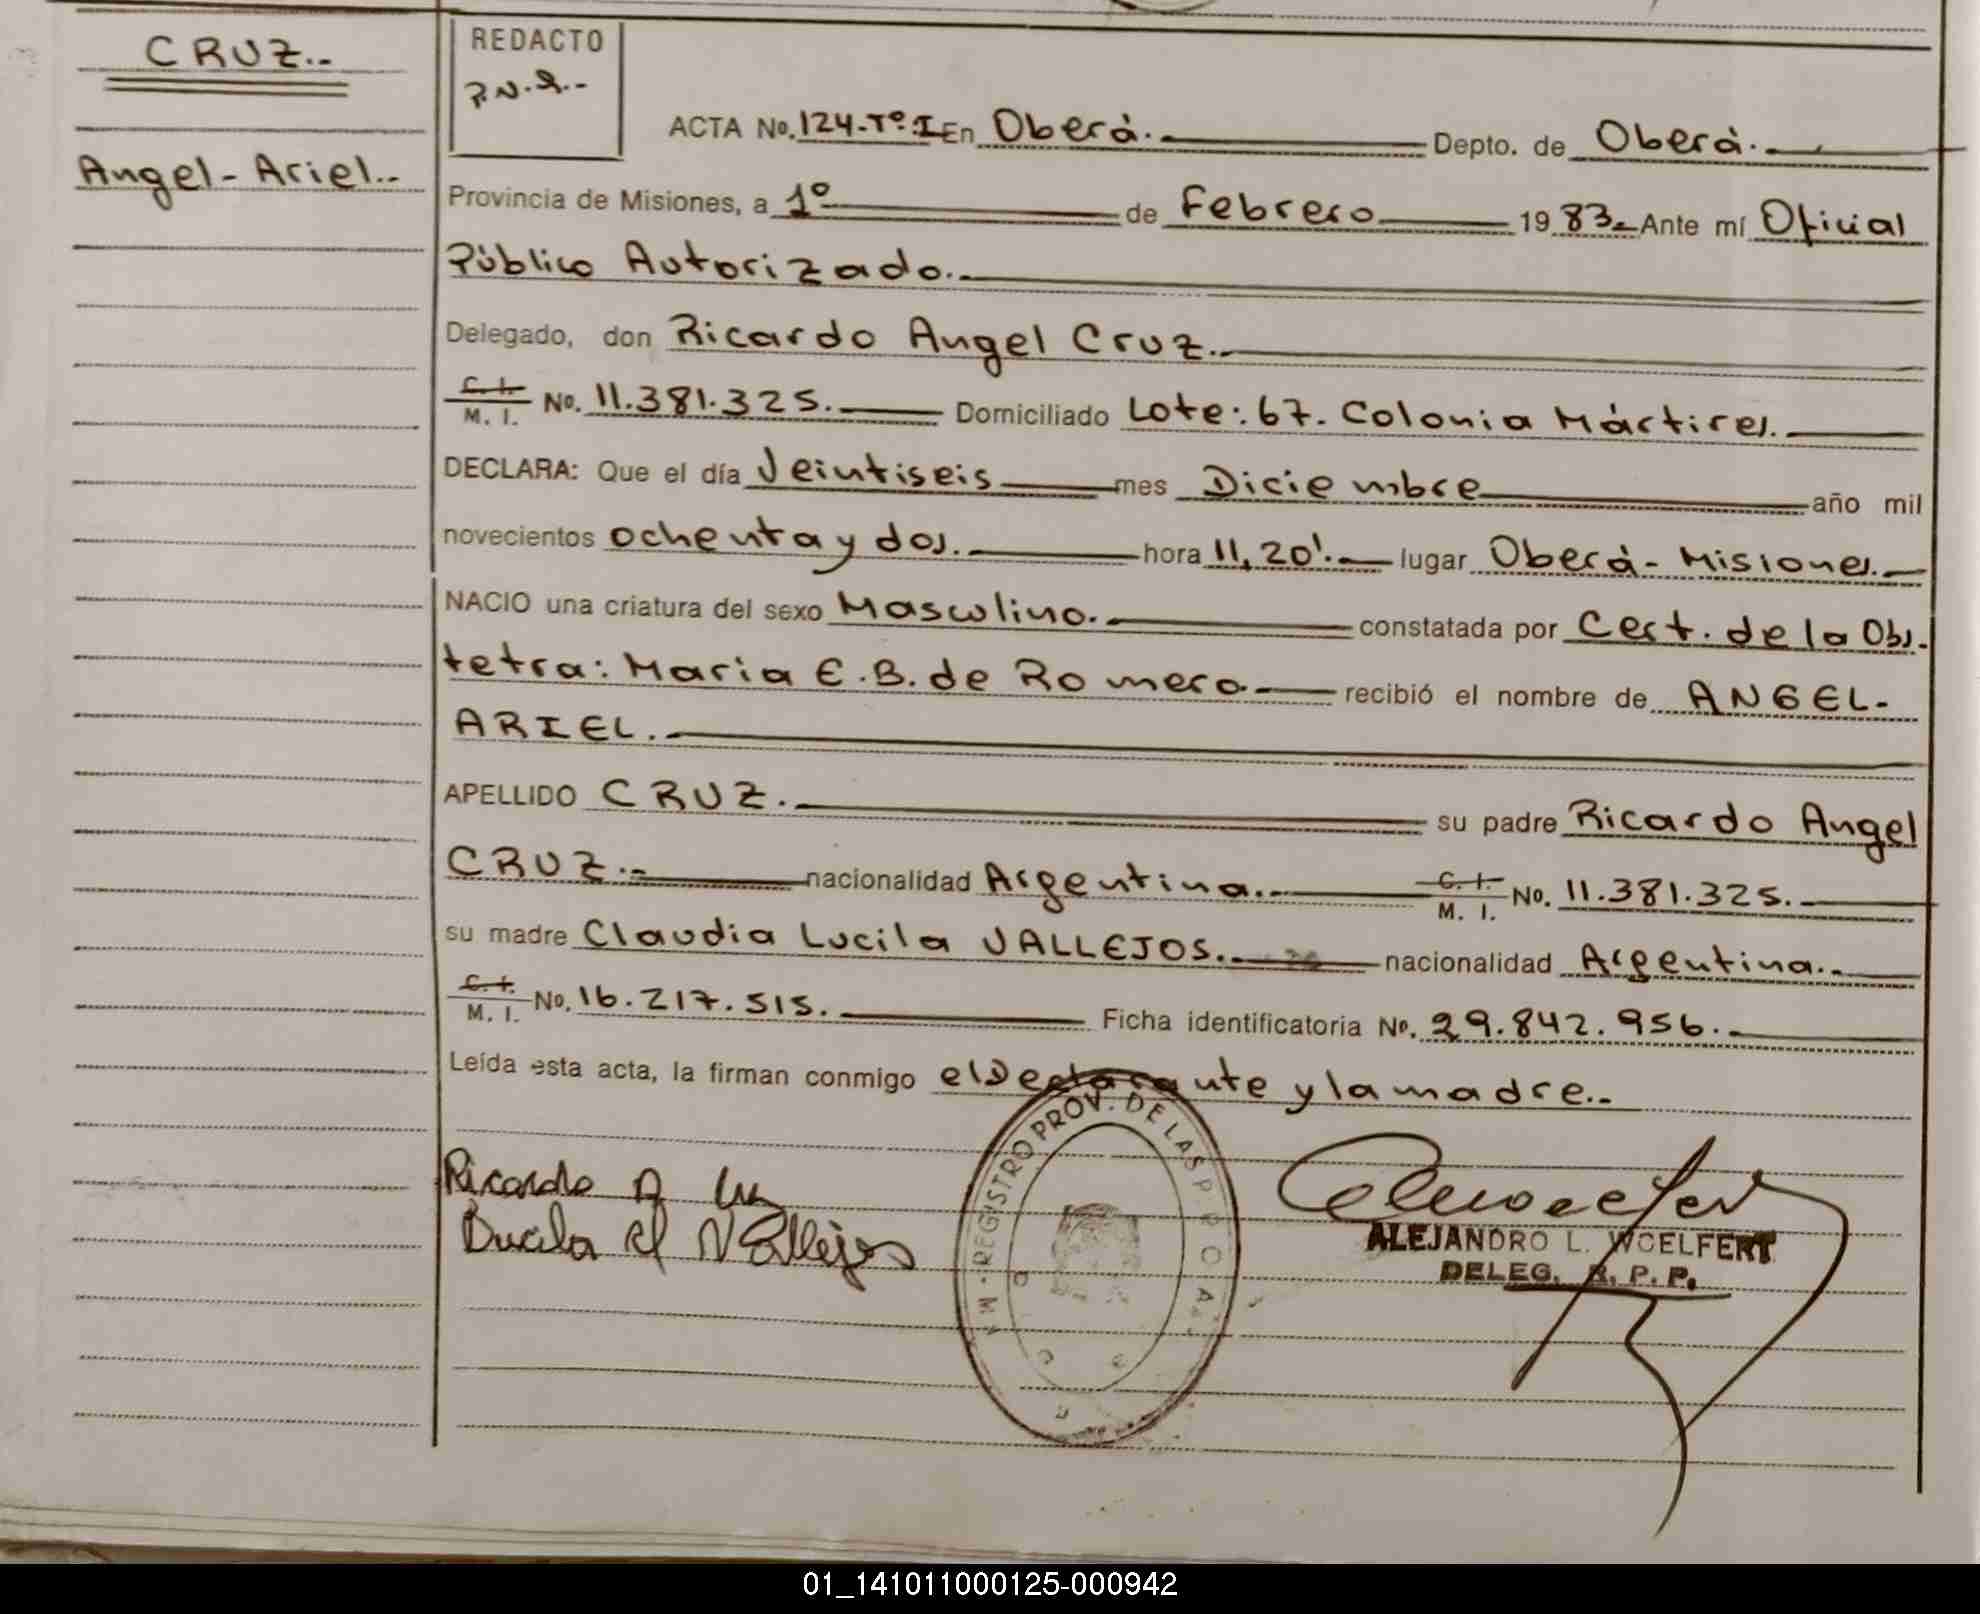 CRUZ.-
Angel-Ariel.-
REDACTO
P.N.
ACTA No. 124-Tº.I En Oberá. Depto. de Oberá.
Provincia de Misiones, a 1º de Febrero 1983.- Ante mí Oficial
Público Autorizado.-
Delegado, don Ricardo Angel Cruz.-
C. I. / M. I. No. 11.381.325. Domiciliado Lote: 67. Colonia Mártires.
DECLARA: Que el día Veintiseis mes Diciembre año mil
novecientos ochenta y dos. hora 11,20'. lugar Oberá-Misiones.-
NACIO una criatura del sexo Masculino. constatada por Cert. de la Obs.
tetra: Maria E.B. de Romero. recibió el nombre de ANGEL-
ARIEL.
APELLIDO CRUZ. su padre Ricardo Angel
CRUZ.- nacionalidad Argentina. C. I. / M. I. No. 11.381.325.
su madre Claudia Lucila VALLEJOS. nacionalidad Argentina.
C. I. / M. I. No. 16.217.515. Ficha identificatoria No. 29.842.956.
Leída esta acta, la firman conmigo el Declarante y la madre.-
REGISTRO PROV. DE LAS P
Ricardo A
Vallejos
ALEJANDRO L. WOELFERT
DELEG. R. P. P.
01_141011000125-000942